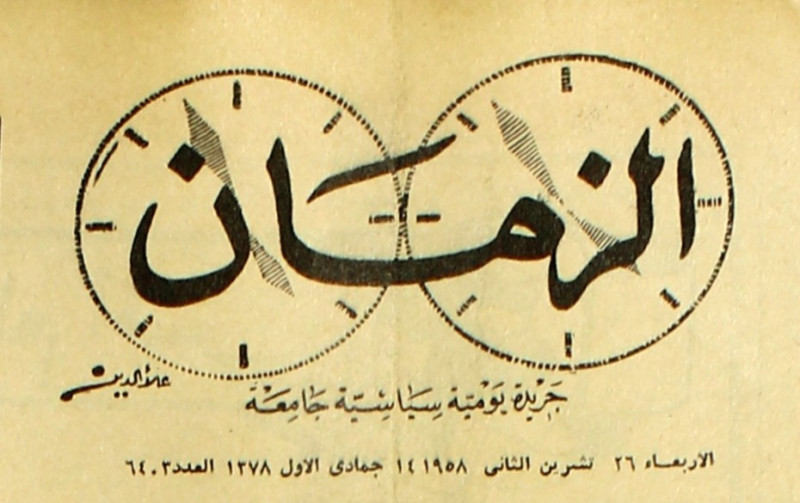 الزمان
علاء الدين
جَرِيدَة يَوْمِيّة سِيَاسِيّة جَامِعَة
الاربعاء ٢٦ تشرين الثانى ١٩٥٨ ١٤ جمادى الاول ١٣٧٨ العدد ٦٤٠٣